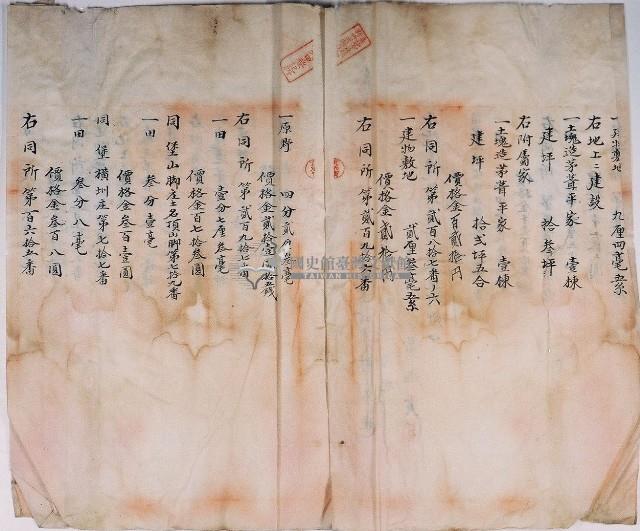 一建物敷地 九厘四毫五糸
右地上ニ建設
一土塊造茅葺平家 壹棟
建坪 拾叁坪
右附屬家
一土塊造茅葺平家 壹棟
建坪 拾弐坪五合
價格金百貳拾円
右同所第貳百八拾七番ノ六
一建物敷地 貳厘叁毫五糸
價格金貳拾円
右同所第貳百九拾六番
一原野 四分貳厘叁毫
價格金貳拾壹円拾五錢
右同所第貳百九拾七番
一田 壹分七厘叁毫
價格金百七拾叁圓
同堡山脚庄土名頂山脚第六拾九番
一田 叁分壹毫
價格金叁百壹圓
同堡橫圳庄第七拾七番
一田 叁分八毫
價格金叁百八圓
右同所第百六拾五番
國史館臺灣文獻館